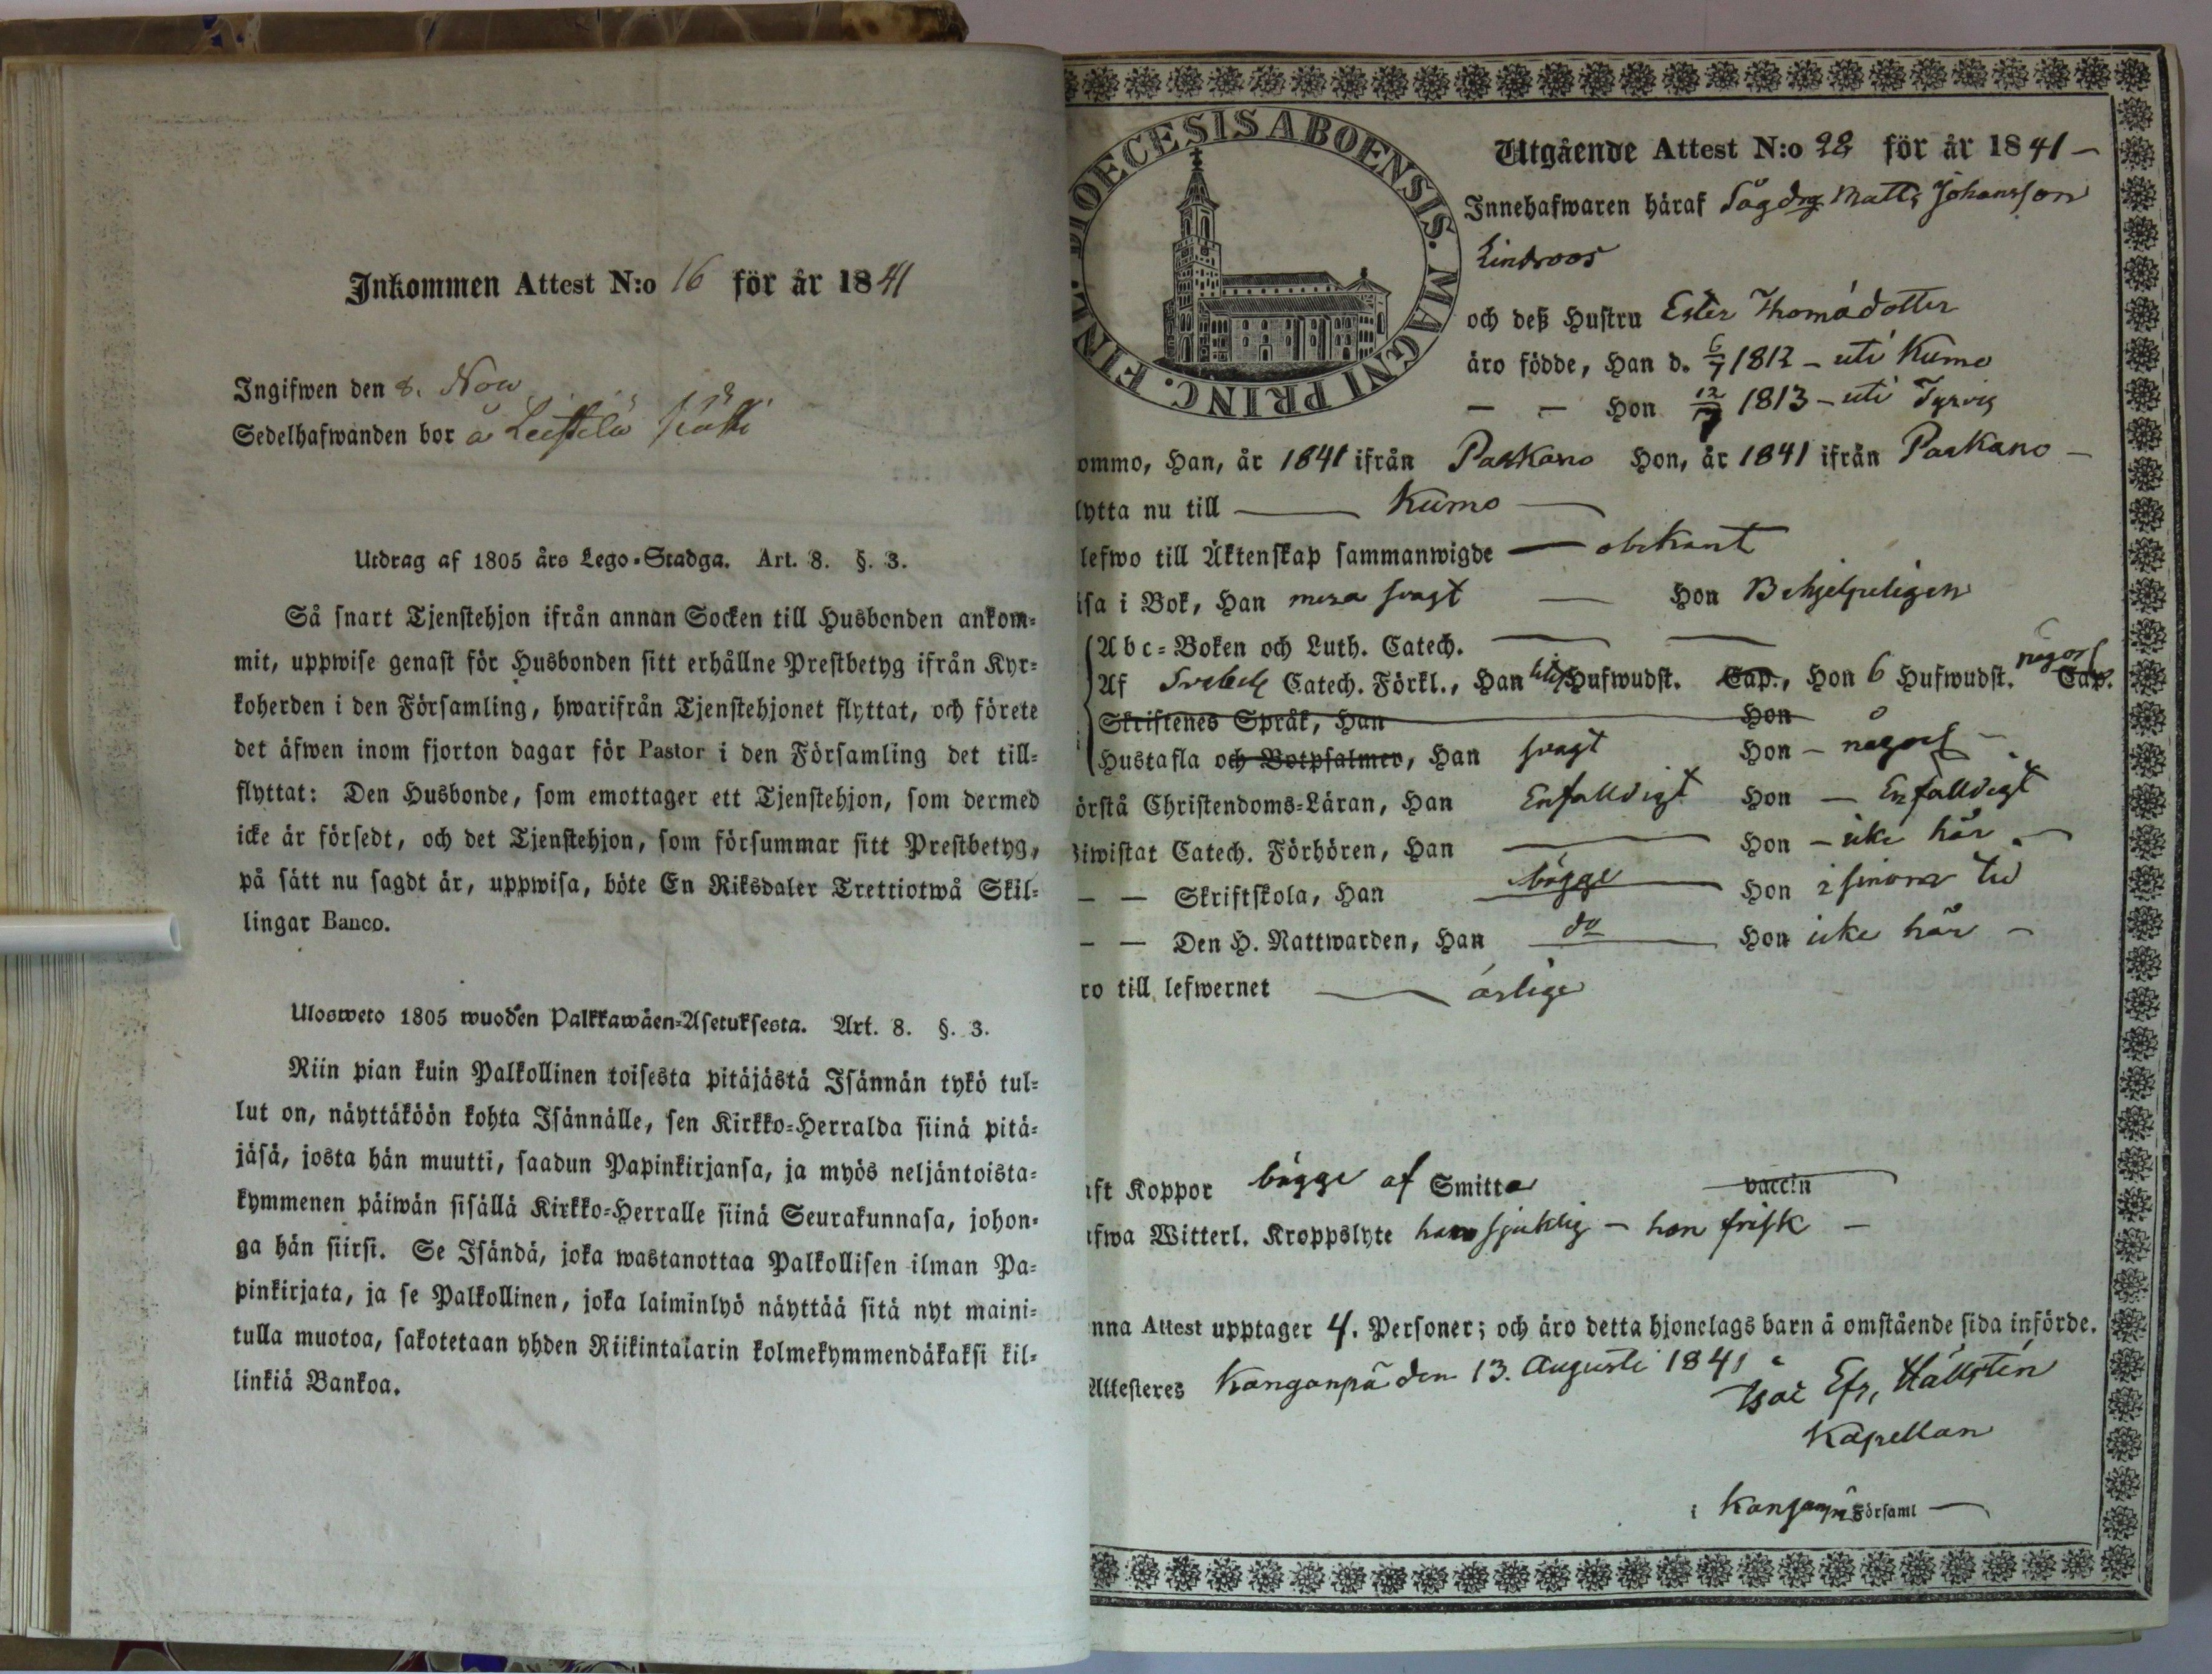 Inkommen Attest N:o 16 för år 1841
Ingifwen den 8. Nov
Sedelhafwanden bor å Leistilä
Utdrag af 1805 års Lego-Stadga. Art. 8. §. 3.
Så snart Tjenstehjon ifrån annan Socken till Husbonden ankom-
mit, uppwise genast för Husbonden sitt erhållne Prestbetyg ifrån Kyr-
koherden i den Församling, hwarifrån Tjenstehjonet flyttat, och förete
det äfwen inom fjorton dagar för Pastor i den Församling det till-
flyttat: Den Husbonde, som emottager ett Tjenstehjon, som dermed
icke är försedt, och det Tjenstehjon, som försummar sitt Prestbetyg,
på sätt nu sagdt är, uppwisa, böte En Riksdaler Trettiotwå Skil-
lingar Banco.
Ulosweto 1805 wuoden Palkkawäen-Asetuksesta. Art. 8. §. 3.
Niin pian kuin Palkollinen toisesta pitäjästä Isännän tykö tul-
lut on, näyttäköön kohta Isännälle, sen Kirkko-Herralda siinä pitä-
jäsä, josta hän muutti, saadun Papinkirjansa, ja myös neljäntoista-
kymmenen päiwän sisällä Kirkko-Herralle siinä Seurakunnasa, johon-
ga hän siirsi. Se Isändä, joka wastanottaa Palkollisen ilman Pa-
pinkirjata, ja se Palkollinen, joka laiminlyö näyttää sitä nyt maini-
tulla muotoa, sakotetaan yhden Riikintalarin kolmekymmendäkaksi kil-
linkiä Bankoa.
DIOECESIS ABOENSIS. MAGNI PRINC. FINL
Utgående Attest N:o 22 för år 1841 –
Innehafwaren häraf Matts Johansson
Lindroos
och deß Hustru Ester Thomädotter
äro födde, Han d. 6/7 1812 – uti Kumo
— — Hon 12/7 1813 – uti Tyrvis
ommo, Han, år 1841 ifrån Parkano Hon, år 1841 ifrån Parkano –
lytta nu till — Kumo —
lefwo till Äktenskap sammanwigde — obekant
äsa i Bok, Han mera svagt — Hon Behjelpeligen
Abc-Boken och Luth. Catech. — —
Af Svebelii Catech. Förkl., Han Hufwudst. Cap., Hon 6 Hufwudst. någors Cap.
Skriftenes Språk, Han Hon
Hustafla och Botpsalmer, Han svagt Hon – någors –
örstå Christendoms-Läran, Han Enfalldigt Hon — Enfalldigt
Biwistat Catech. Förhören, Han — Hon – icke här –
— — Skriftskola, Han bägge Hon i sinom tid
— — Den H. Nattwarden, Han do Hon icke här –
ro till lefwernet — ärlige
aft Koppor bägge af Smitta vaccin
afwa Witterl. Kroppslyte han sjuklig – hon frisk –
nna Attest upptager 4. Personer; och äro detta hjonelags barn å omstående sida införde.
Attesteres Kanganpä den 13. Augusti 1841
Isac Efr. Hällstén
Kapellan
i Kanganpä Församl —